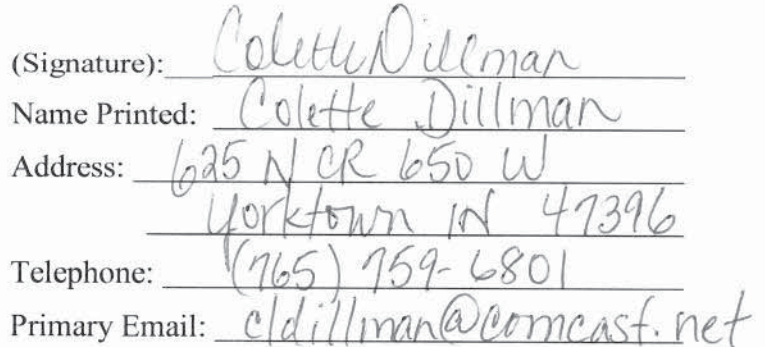 (Signature): Colette Dillman
Name Printed: Colette Dillman
Address: 625 N CR 650 W
Yorktown IN 47396
Telephone: (765) 759-6801
Primary Email: cldillman@comcast.net